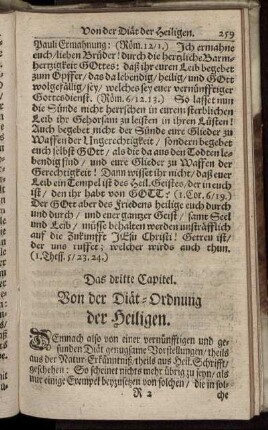 Von der Diät der Heiligen. 259
Pauli Ermahnung: (Röm. 12/1.) Ich ermahne
euch/ lieben Brüder! durch die hertzliche Barm-
hertzigkeit GOttes: daß ihr euren Leib begebet
zum Opffer/ das da lebendig/ heilig/ und GOtt
wolgefällig/ sey/ welches sey euer vernünfftiger
Gottesdienst. (Röm. 6/12. 13.) So lasset nun
die Sünde nicht herrschen in eurem sterblichen
Leib ihr Gehorsam zu leisten in ihren Lüsten!
Auch begebet nicht der Sünde eure Glieder zu
Waffen der Ungerechtigkeit/ sondern begebet
euch selbst GOtt/ als die da aus den Todten le-
bendig sind/ und eure Glieder zu Waffen der
Gerechtigkeit! Dann wisset ihr nicht/ daß euer
Leib ein Tempel ist des Heil. Geistes/ der in euch
ist/ den ihr habt von GOTT? (1. Cor. 6/19.)
Der GOtt aber des Friedens heilige euch durch
und durch/ und euer gantzer Geist/ samt Seel
und Leib/ müsse behalten werden unsträflich
auf die Zukunfft JEsu Christi! Getreu ist/
der uns ruffet; welcher wirds auch thun.
(1. Thess. 5/23. 24.)
Das dritte Capitel.
Von der Diät-Ordnung
der Heiligen.
DEmnach also von einer vernünfftigen und ge-
sunden Diät genugsame Vorstellungen/ theils
aus der Natur-Erkänntniß/ theils aus Heil. Schrifft/
geschehen: So scheinet nichts mehr übrig zu seyn/ als
nur einige Exempel beyzusetzen von solchen/ die in sol-
R 2 che